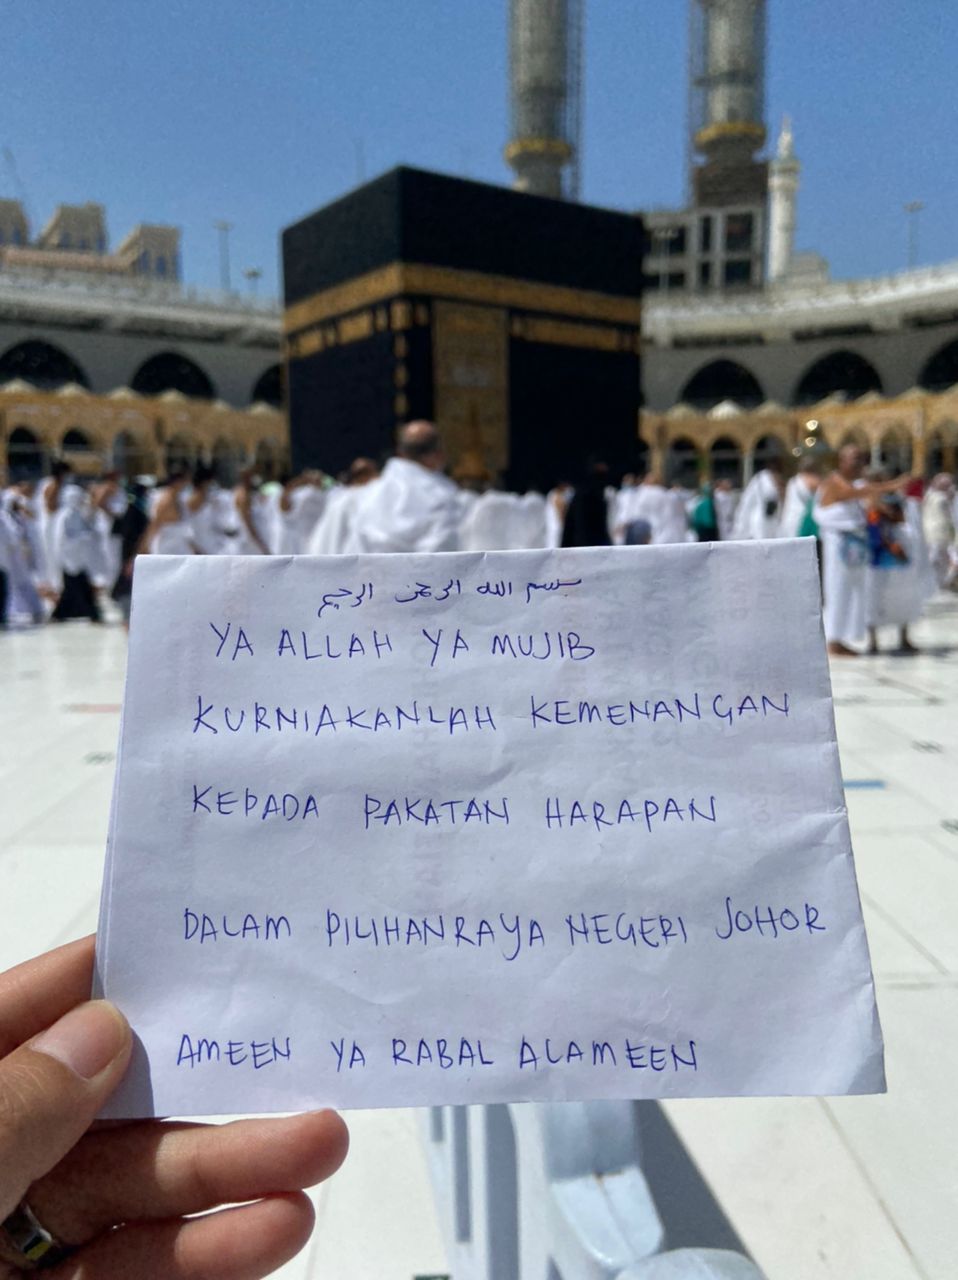 بسم الله الرحمن الرحيم
YA ALLAH YA MUJIB
KURNIAKANLAH KEMENANGAN
KEPADA PAKATAN HARAPAN
DALAM PILIHANRAYA NEGERI JOHOR
AMEEN YA RABAL ALAMEEN